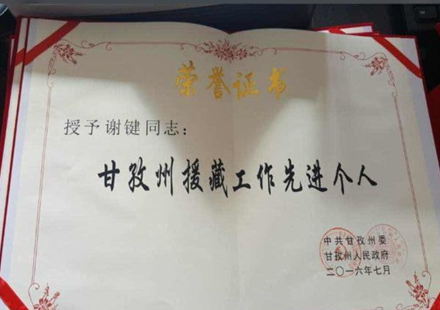 荣誉证书
授予谢键同志：
甘孜州援藏工作先进个人
中共甘孜州委
甘孜州人民政府
二〇一六年七月